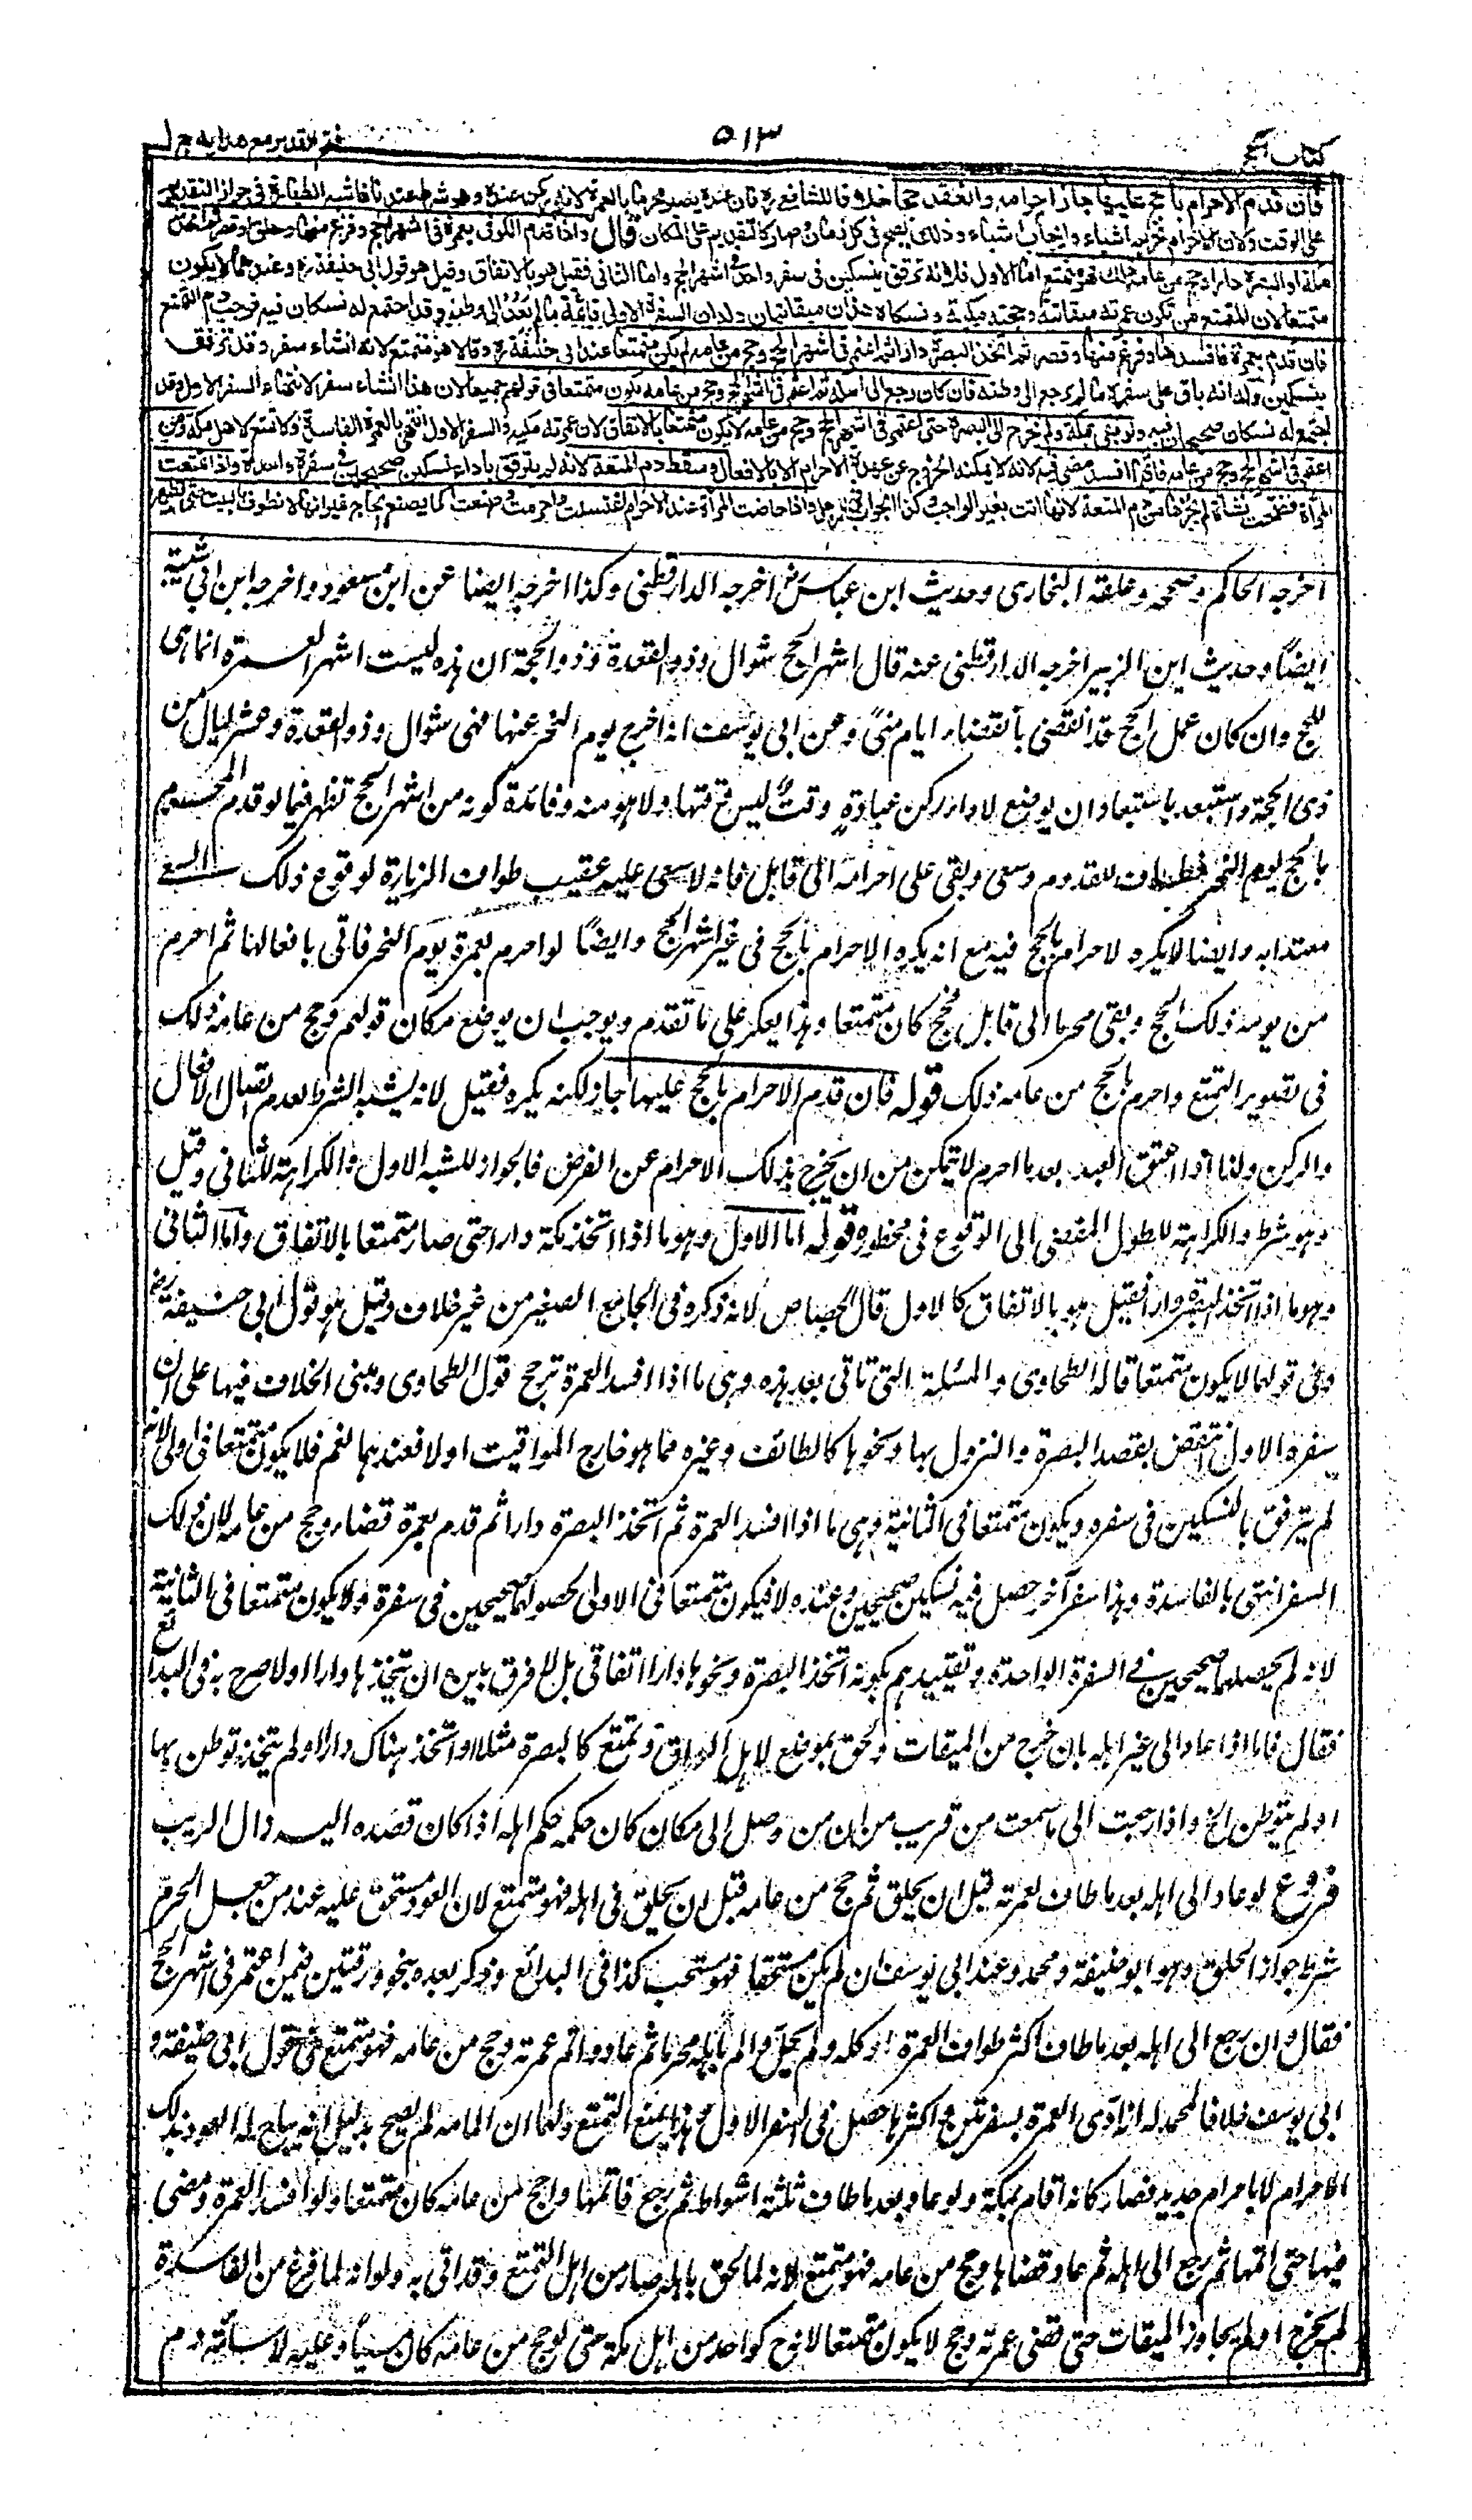 كتاب الحج
٥١٣
فتح القدير مع هدايه ج ١
فان قدم الاحرام بالحج عليها جاز احرامه وانعقد حجا خلافا للشافعي ره فان عنده يصير محرما بالعمرة لانه ركن عنده وهو شرط عندنا فاشبه الطهارة في جواز التقديم
على الوقت ولان الاحرام تحريم اشياء وايجاب اشياء وذلك يصح في كل زمان وصار كالتقديم على المكان قال واذا قدم الكوفي بعمرة في اشهر الحج وفرغ منها وحلق او قصر ثم اتخذ
مكة او البصرة دارا وحج من عامه ذلك فهو متمتع اما الاول فلانه ترفق بنسكين في سفر واحد في اشهر الحج واما الثاني فقيل هو بالاتفاق وقيل هو قول ابي حنيفة ره وعندهما لا يكون
متمتعا لان المتمتع من تكون عمرته ميقاتية وحجته مكية ونسكاه هذان ميقاتيان وله ان السفرة الاولى قائمة مالم يعد الى وطنه وقد اجتمع له نسكان فيه فوجب دم التمتع
فان قدم بعمرة فافسدها وفرغ منها وقصر ثم اتخذ البصرة دارا ثم اعتمر في اشهر الحج وحج من عامه لم يكن متمتعا عند ابي حنيفة ره وقالا هو متمتع لانه انشاء سفر وقد ترفق
بنسكين وله انه باق على سفره مالم يرجع الى وطنه فان كان رجع الى اهله ثم اعتمر في اشهر الحج وحج من عامه يكون متمتعا في قولهم جميعا لان هذا انشاء سفر لانتهاء السفر الاول وقد
اجتمع له نسكان صحيحان فيه ولو بقي بمكة ولم يخرج الى البصرة حتى اعتمر في اشهر الحج وحج من عامه لا يكون متمتعا بالاتفاق لان عمرته مكية والسفر الاول انتهى بالعمرة الفاسدة ولا تمتع لاهل مكة ومن
اعتمر في اشهر الحج وحج من عامه فايهما افسد مضى فيه لانه لا يمكنه الخروج عن عهدة الاحرام الا بالافعال وسقط دم المتعة لانه لم يترفق باداء نسكين صحيحين في سفرة واحدة واذا تمتعت
المرأة فضحت بشاة لم يجزها من دم المتعة لانها اتت بغير الواجب وكذا الجواب في الرجل واذا حاضت المرأة عند الاحرام اغتسلت واحرمت وصنعت كما يصنع الحاج غير انها لا تطوف بالبيت حتى تطهر
اخرجه الحاكم وصححه وعلقه البخارى وحديث ابن عباس رض اخرجه الدارقطنى وكذا اخرجه ايضا عن ابن مسعود واخرجه ابن ابى شيبة
ايضاً وحديث ابن الزبير اخرجه الدارقطنى عنه قال اشهر الحج شوال وذو القعدة وذو الحجة ان هذه ليست اشهر العمرة انما هى
للحج وان كان عمل الحج قد انقضى بانقضاء ايام منىً وعن ابى يوسف انه اخرج يوم النحر عنها فهى شوال وذو القعدة وعشر ليال من
ذى الحجة واستبعد باستبعاد ان يوضع لاداء ركن عبادةٍ وقتٌ ليس وقتها ولا هو منه وفائدة كونه من اشهر الحج تظهر فيما لو قدم المحرم
بالحج يوم النحر فطاف للقدوم وسعى وبقى على احرامه الى قابل فانه لا سعى عليه عقيب طواف الزيارة لوقوع ذلك السعے
معتدا به وايضا لا يكره الاحرام بالحج فيه مع انه يكره الاحرام بالحج فى غير اشهر الحج وايضًا لو احرم بعمرة يوم النحر فاتى بافعالها ثم احرم
من يومه ذلك الحج وبقى محرما الى قابل فحج كان متمتعا وهذا يعكر على ما تقدم ويوجب ان يوضع مكان قولهم وحج من عامه ذلك
فى تصوير التمتع واحرم بالحج من عامه ذلك قوله فان قدم الاحرام بالحج عليها جاز لكنه يكره فقيل لانه يشبه الشرط لعدم اتصال الافعال
والركن ولذا اذا اعتق العبد بعد ما احرم لا يتمكن من ان يخرج بذلك الاحرام عن الفرض فالجواز للشبه الاول والكراهة للثانى وقيل
وهو شرط والكراهة للطول المفضى الى الوقوع فى محظوره قوله اما الاول وهو ما اذا اتخذ مكة دارا حتى صار متمتعا بالاتفاق واما الثانى
وهو ما اذا اتخذ البصرة دارا فقيل هو بالاتفاق كالاول قال الجصاص لانه ذكره فى الجامع الصغير من غير خلاف وقيل هو قول ابى حنيفة رض
وفى قولهما لا يكون متمتعا قاله الطحاوى والمسئلة التى تاتى بعد هذه وهى ما اذا افسد العمرة ترجح قول الطحاوى ومبنى الخلاف فيها على ان
سفره الاول انتقض بقصد البصرة والنزول بها ونحوها كالطائف وغيره مما هو خارج المواقيت اولا فعندهما نعم فلا يكون متمتعا فى الاولى لانه
لم يترفق بالنسكين فى سفره ويكون متمتعا فى الثانية وهى ما اذا افسد العمرة ثم اتخذ البصرة دارا ثم قدم بعمرة قضاء وحج من عامه لان ذلك
السفر انتهى بالفاسدة وهذا سفر آخر حصل فيه نسكين صحيحين وعنده لا فيكون متمتعا فى الاولى لحصولهما صحيحين فى سفرة ولا يكون متمتعا فى الثانية
لانه لم يحصلهما صحيحين فے السفرة الواحدة وتقييدهم بكونه اتخذ البصرة ونحوها دارا اتفاقى بل لا فرق بين ان يتخذها دارا اولا صرح به فى البدائع
فقال فاما اذا عاد الى غير اهله بان خرج من الميقات ولحق بموضع لاهل القران وتمتع كالبصرة مثلا واتخذ هناك دارا او لم يتخذ توطن بها
او لم يتوطن الخ واذا رجعت الى ما سمعت من قريب من ان من وصل الى مكان كان حكمه حكم اهله اذا كان قصده اليه زال الريب
فروع لو عاد الى اهله بعد ما طاف لعمرته قبل ان يحلق ثم حج من عامه قبل ان يحلق فى اهله فهو متمتع لان العود مستحق عليه عند من جعل الحرم
شرط جواز الحلق وهو ابو حنيفة ومحمد وعند ابى يوسف ان لم يكن مستحقا فهو مستحب كذا فى البدائع وذكر بعده بنحو ورقتين فيمن اعتمر فى اشهر الحج
فقال وان رجع الى اهله بعد ما طاف اكثر طواف العمرة او كله ولم يحل والم باهله محرما ثم عاد واتم عمرته وحج من عامه فهو متمتع فى قول ابى حنيفة و
ابى يوسف خلافا لمحمد له انه ادى العمرة بسفرتين واكثرها حصل فى السفر الاول وهذا يمنع التمتع ولهما ان المامه لم يصح بدليل انه يباح له العود بذلك
الاحرام لا باحرام جديد فصار كانه اقام بمكة ولو عاد بعد ما طاف ثلثة اشواط ثم رجع فاتمها وحج من عامه كان متمتعا ولو افسد العمرة ومضى
فيها حتى اتمها ثم رجع الى اهله ثم عاد وقضاها وحج من عامه فهو متمتع لانه لما لحق باهله صار من اهل التمتع وقد اتى به ولو انه لما فرغ من الفاسدة
لم يخرج او لم يجاوز الميقات حتى قضى عمرته وحج لا يكون متمتعا لانه ح كواحد من اهل مكة حتى لو حج من عامه كان مسيئاً وعليه لاسائته دم